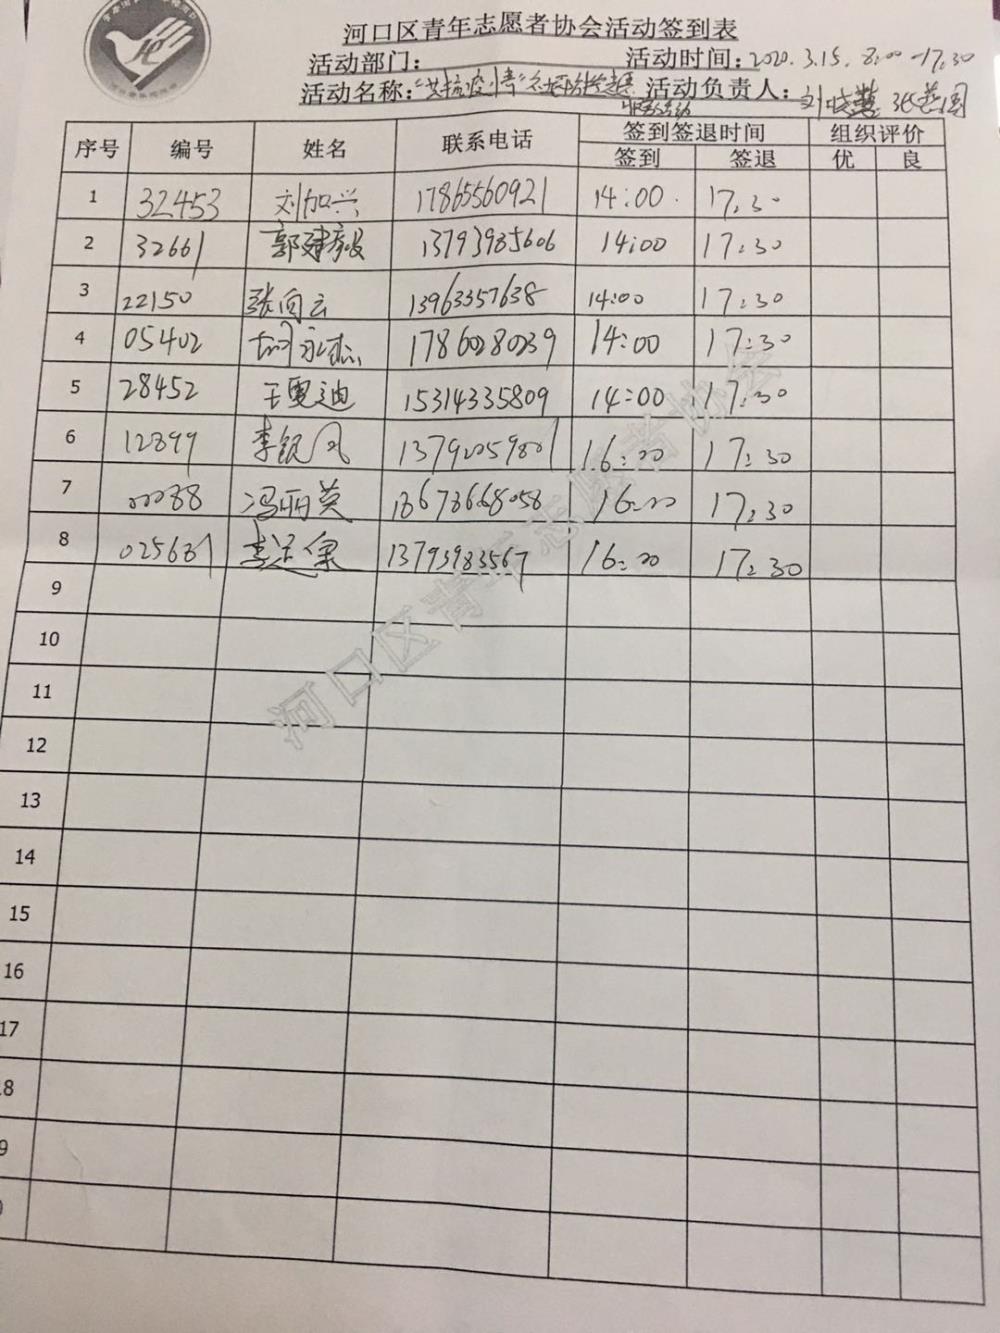 河口区青年志愿者协会活动签到表
活动部门： 活动时间：2020.3.15. 8:00-17:30
活动名称：“共抗疫情” 活动负责人：刘晓慧
序号 编号 姓名 联系电话 签到签退时间 组织评价
签到 签退 优 良
1 32453 刘加兴 17865560921 14:00 17:30
2 32661 郭建毅 13793985606 14:00 17:30
3 22150 张向云 13963357638 14:00 17:30
4 05402 胡永杰 17860280239 14:00 17:30
5 28452 王雯迪 15314335809 14:00 17:30
6 12899 李银凤 13792059801 16:00 17:30
7 00088 冯丽英 13673668058 16:00 17:30
8 025681 13793983567 16:00 17:30
9
10
11
12
13
14
15
16
17
18
9
河口区青年志愿者协会